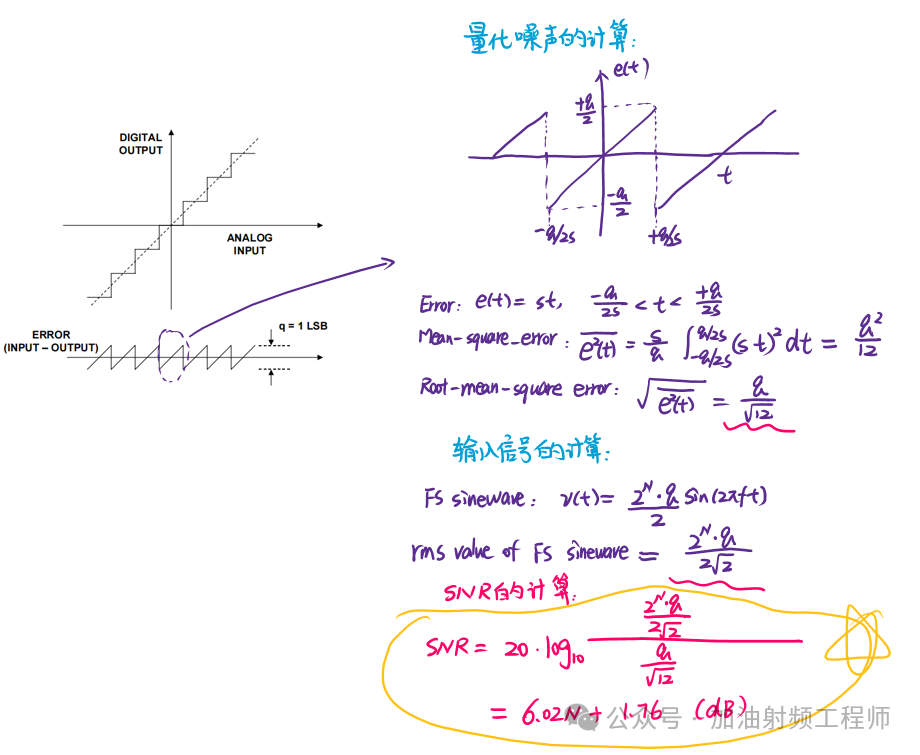 量化噪声的计算:
e(t)
+q/2
-q/2
t
-q/2s
+q/s
DIGITAL
OUTPUT
ANALOG
INPUT
ERROR
(INPUT – OUTPUT)
q = 1 LSB
Error: e(t) = st, -q/2s < t < +q/2s
Mean-square-error: e²(t) = s/q ∫_{-q/2s}^{q/2s} (st)² dt = q²/12
Root-mean-square error: √e²(t) = q/√12
输入信号的计算:
FS sinewave: v(t) = 2^N·q/2 sin(2πft)
rms value of FS sinewave = 2^N·q/2√2
SNR的计算:
SNR = 20·log₁₀ (2^N·q/2√2)/(q/√12)
= 6.02N + 1.76 (dB)
公众号·加油射频工程师